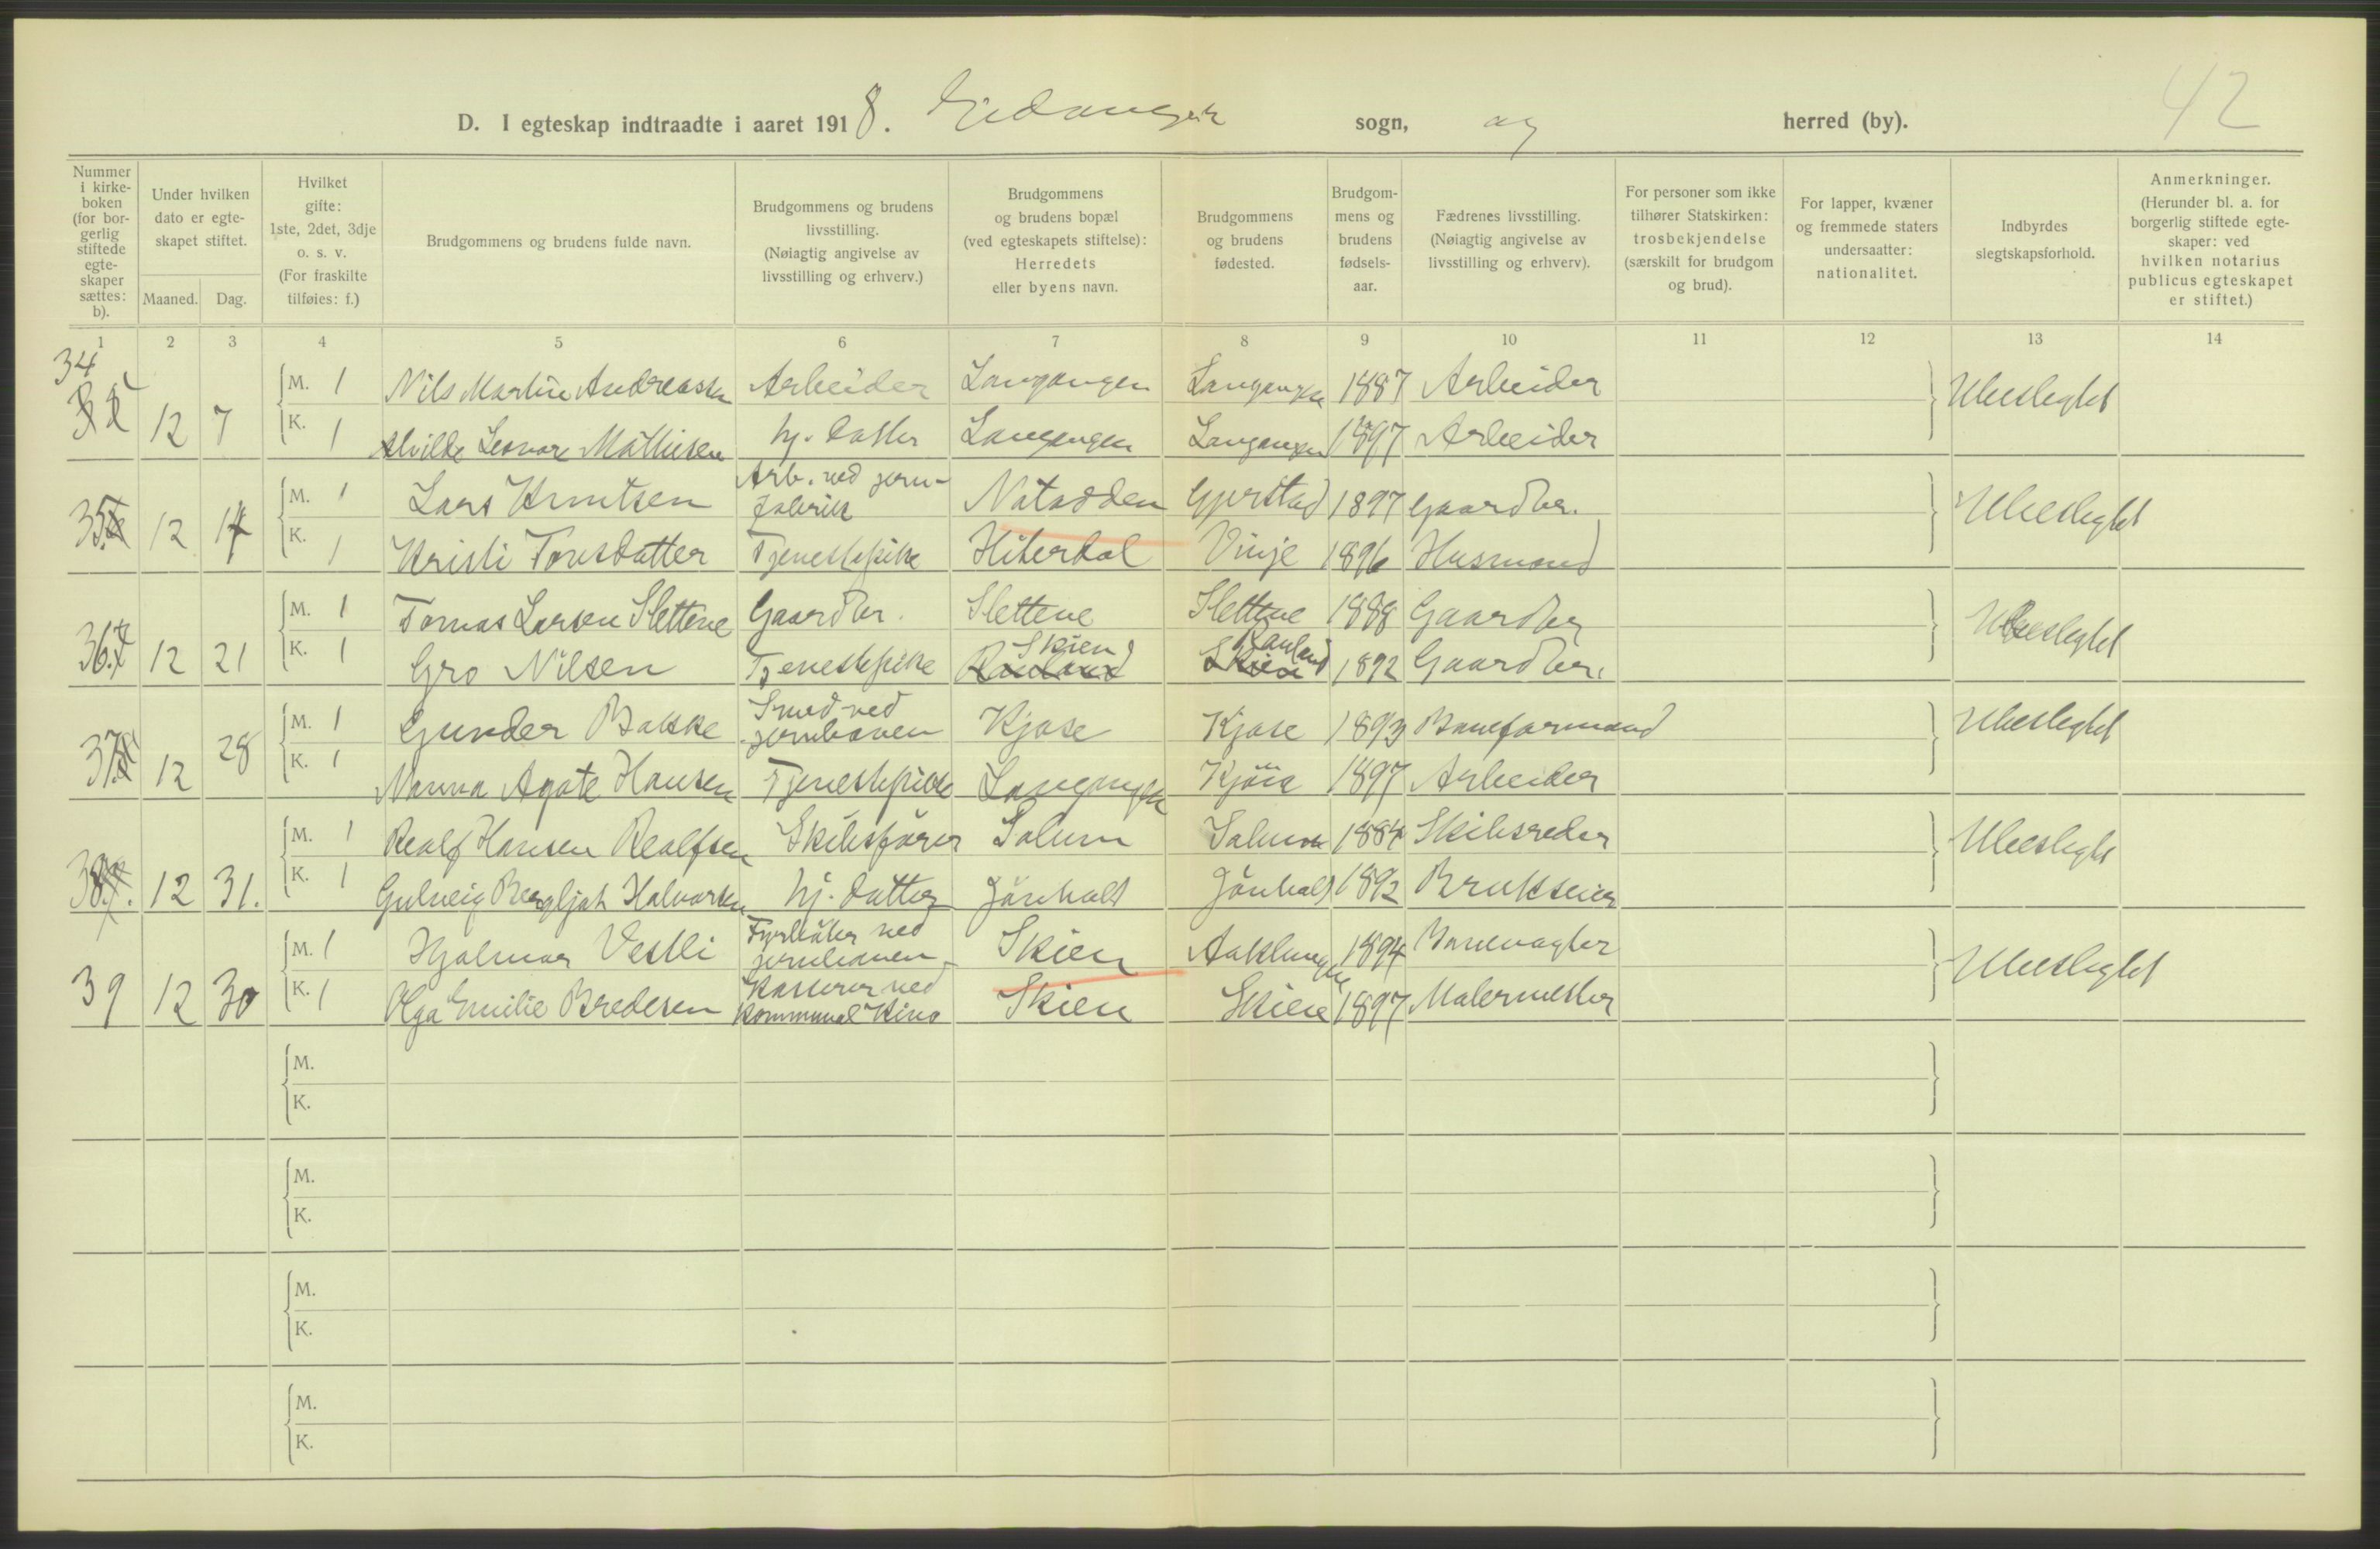 42
D. I egteskap indtraadte i aaret 1918. Eidanger sogn, og herred (by).
Nummer i kirke-boken (for bor-gerlig stiftede egte-skaper sættes: b).
Under hvilken dato er egte-skapet stiftet.
Maaned. Dag.
Hvilket gifte: 1ste, 2det, 3dje o. s. v. (For fraskilte tilføies: f.)
Brudgommens og brudens fulde navn.
Brudgommens og brudens livsstilling. (Nøiagtig angivelse av livsstilling og erhverv.)
Brudgommens og brudens bopæl (ved egteskapets stiftelse): Herredets eller byens navn.
Brudgommens og brudens fødested.
Brudgom-mens og brudens fødsels-aar.
Fædrenes livsstilling. (Nøiagtig angivelse av livsstilling og erhverv).
For personer som ikke tilhører Statskirken: trosbekjendelse (særskilt for brudgom og brud).
For lapper, kvæner og fremmede staters undersaatter: nationalitet.
Indbyrdes slegtskapsforhold.
Anmerkninger. (Herunder bl. a. for borgerlig stiftede egte-skaper: ved hvilken notarius publicus egteskapet er stiftet.)
1 2 3 4 5 6 7 8 9 10 11 12 13 14
34 12 7 M. 1 Nils Martin Andreassen Arbeider Langangen Langangen 1887 Arbeider Ubeslegtet
K. 1 Alvilde Leonore Mathisen hj. datter Langangen Langangen 1897 Arbeider
35 12 14 M. 1 Lars Knutsen Arb. ved jern-fabrik Notodden Gjerstad 1897 Gaardbr. Ubeslegtet
K. 1 Kristi Toresdatter Tjenestepike Hiterdal Vinje 1896 Husmand
36 12 21 M. 1 Tomas Larsen Slettene Gaardbr. Slettene Slettene 1888 Gaardbr Ubeslegtet
K. 1 Gro Nilsen Tjenestepike Skien Rauland Rauland Skien 1892 Gaardbr.
37 12 28 M. 1 Gunder Bakke Smed ved jernbanen Kjose Kjose 1893 Baneformand Ubeslegtet
K. 1 Nanna Agate Hansen Tjenestepike Langangen 1897 Arbeider
38. 12 31. M. 1 Realf Hansen Realfsen Skibsfører Solum Solum 1884 Skibsreder Ubeslegtet
K. 1 Gulveig Bergljot Halvorsen hj. datter Jönholt Jönholt 1892 Brukseier
39 12 30 M. 1 Hjalmar Vestli Fyrbøter ved jernbanen Skien Aaklungen 1894 Banevagter Ubeslegtet
K. 1 Olga Emilie Bredesen Kasserer ved Kommunal Kino Skien Skien 1897 Malermester
M.
K.
M.
K.
M.
K.
M.
K.